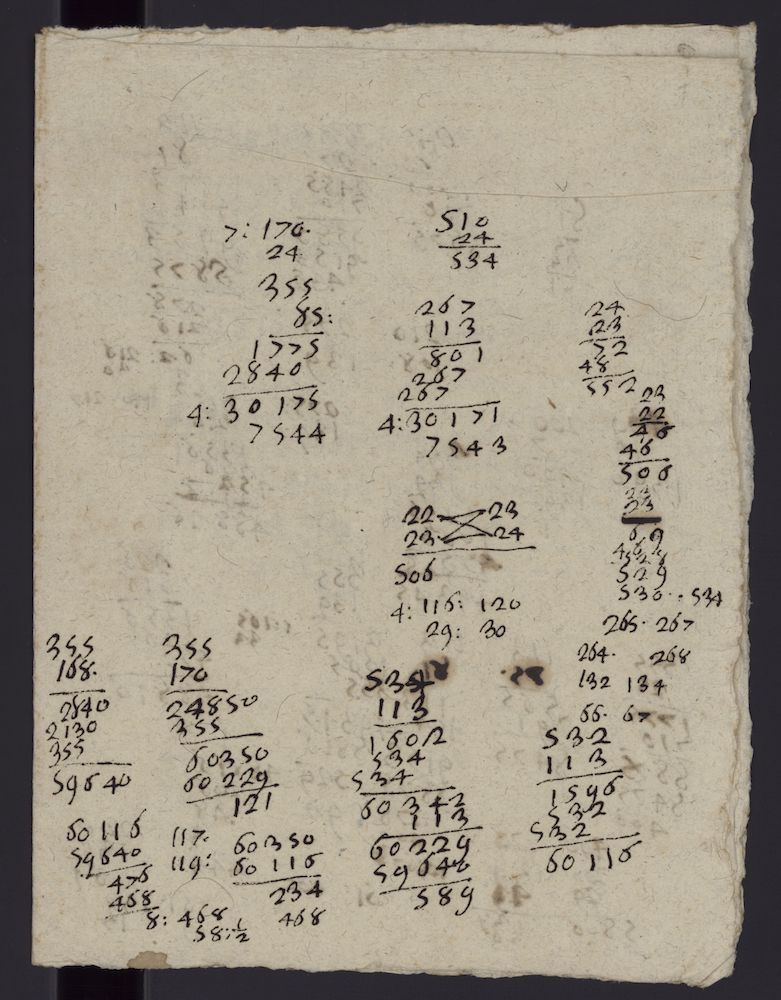 7: 170.
24
355
85:
1775
2840
4: 30175
7544
510
24
534
267
113
801
267
267
4: 30171
7543
24
23
52
48
552
23
22
46
46
506
23
69
529
530. . 534
265. 267
264. 268
132 134
66. 67
22 23
23 24
506
4: 116: 120
29: 30
355
168.
2840
2130
355
59640
60116
59640
476
468
8: 468
58:½
355
170
24850
355
60350
60229
121
117.
119:
60350
60116
234
468
534
113
1602
534
534
60342
113
60229
59640
589
532
113
1596
532
532
60116